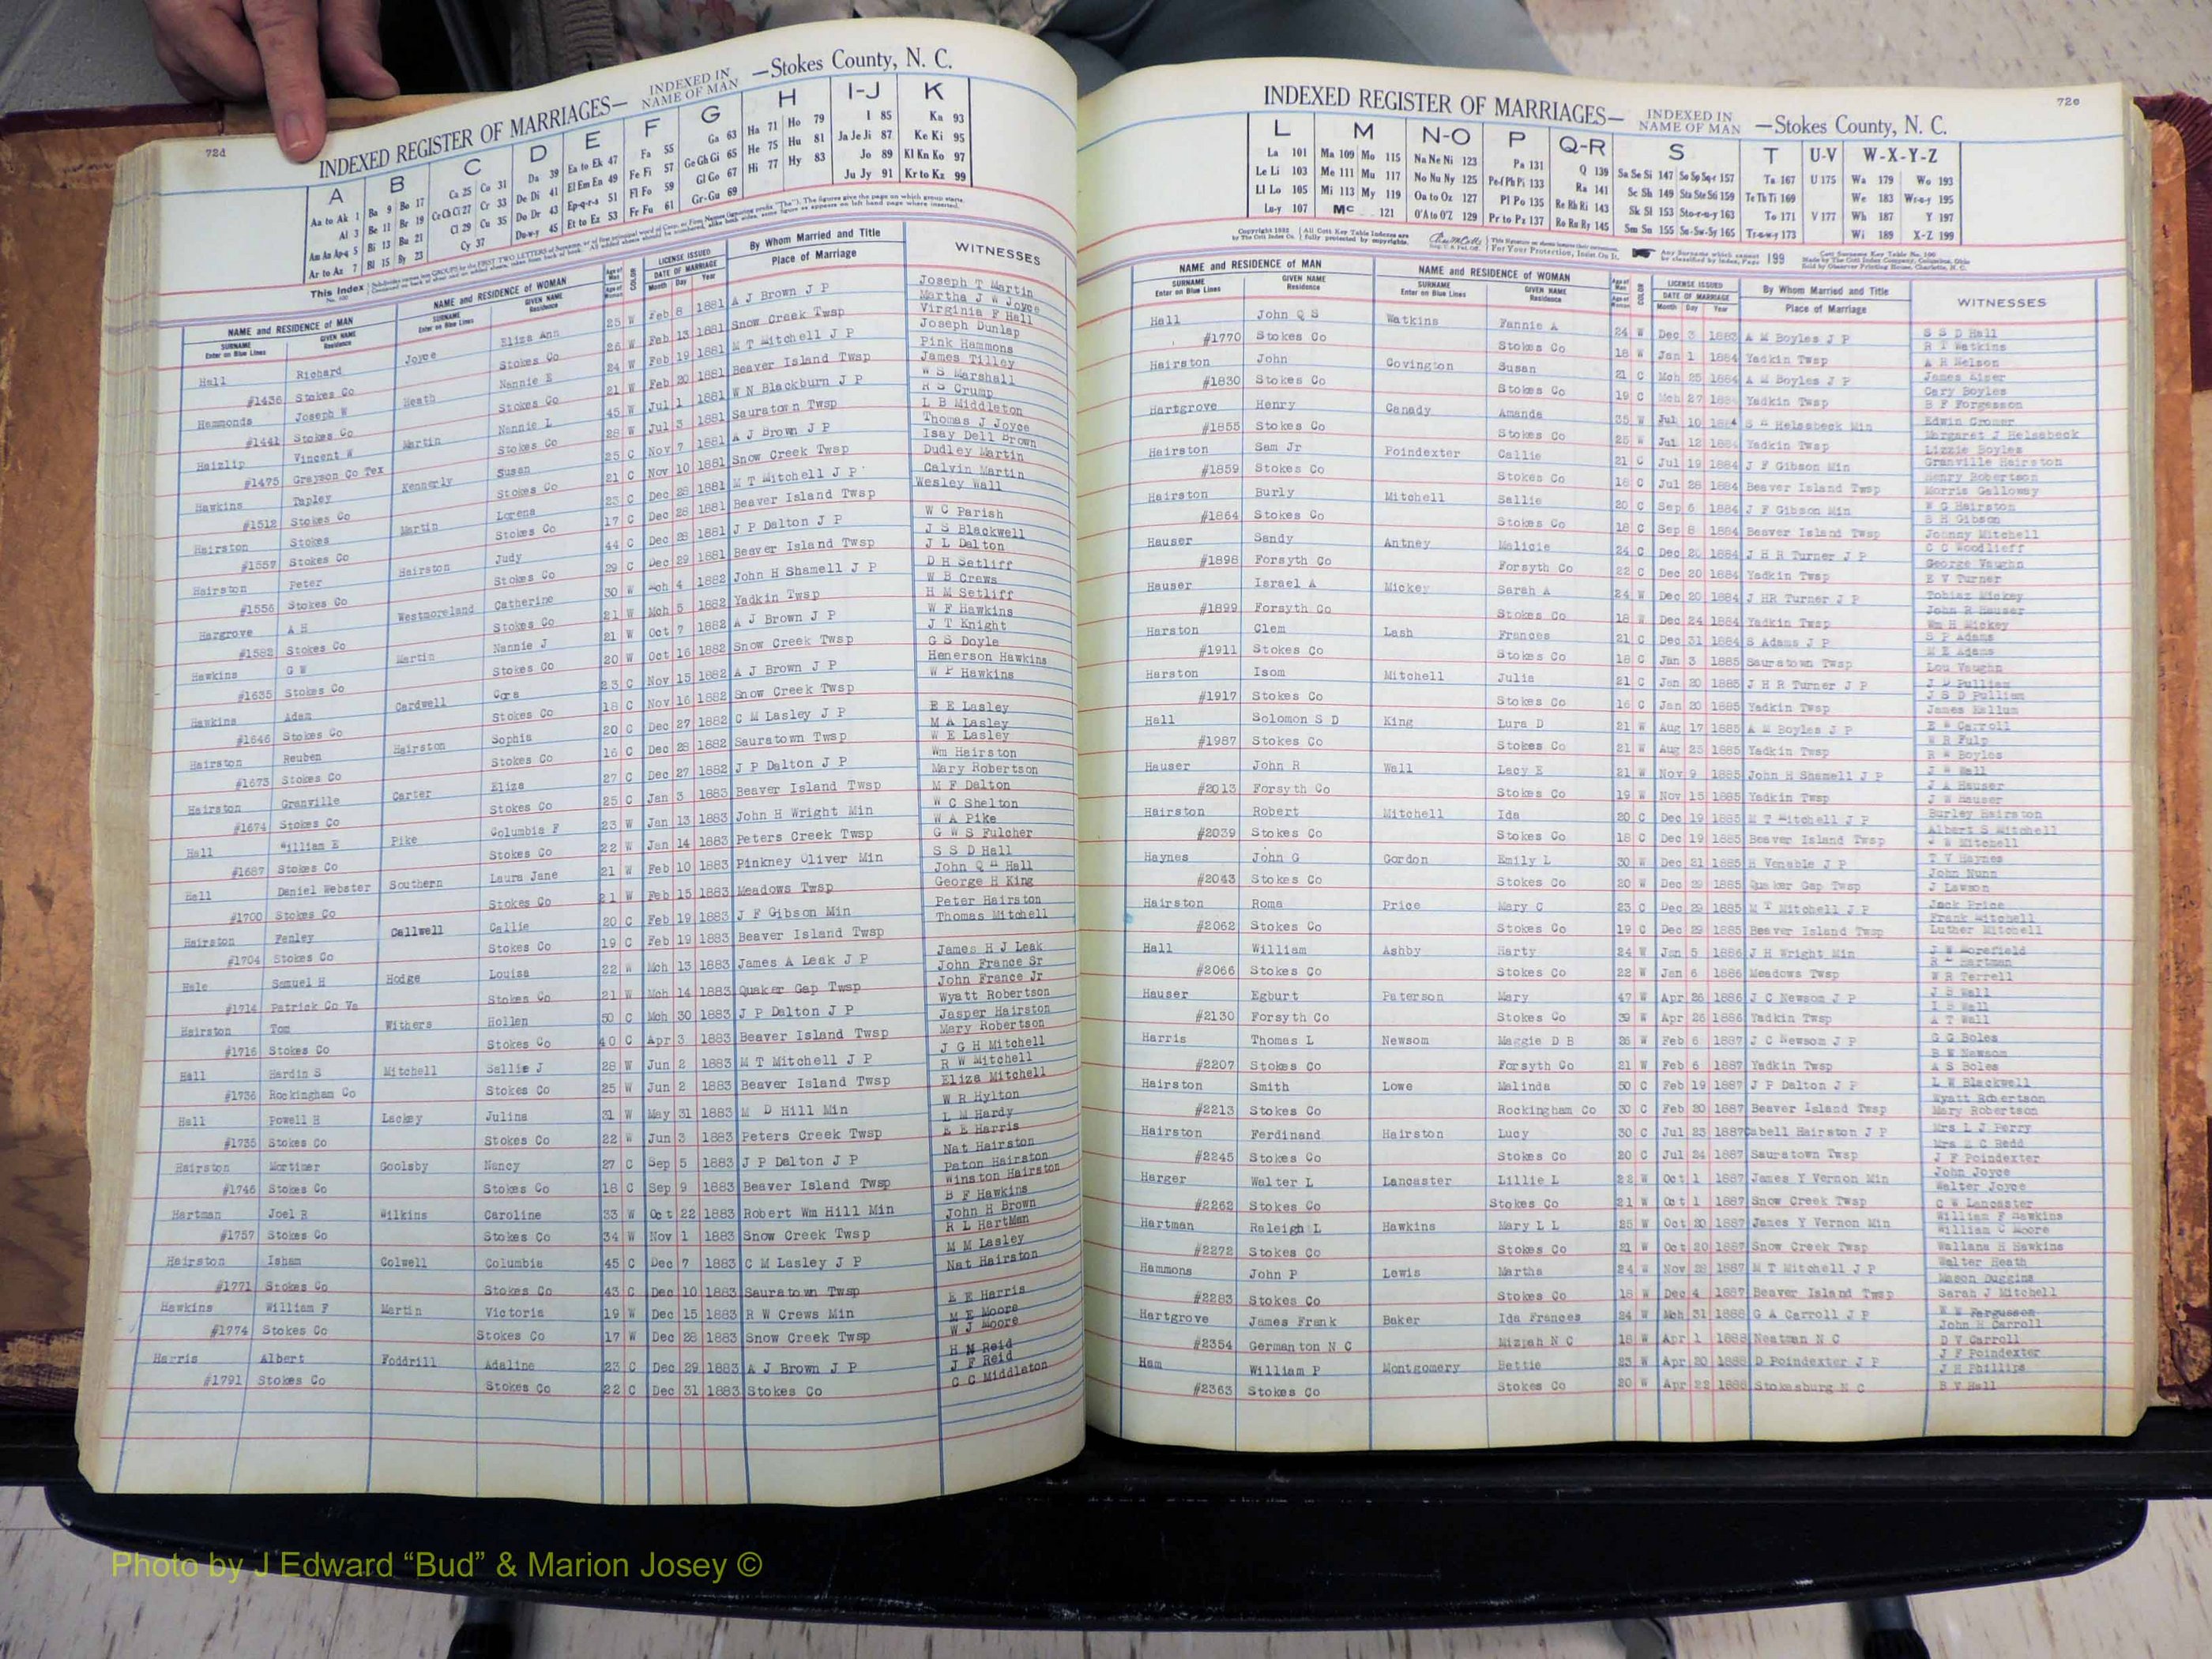 72d
INDEXED REGISTER OF MARRIAGES— INDEXED IN NAME OF MAN —Stokes County, N. C.
A B C D E F G H I-J K
Aa to Ak 1 Ba 9 Bo 17 Ca 25 Co 31 Da 39 Ea to Ek 47 Fa 55 Ga 63 Ha 71 Ho 79 I 85 Ka 93
Al 3 Be 11 Br 19 Ce Ch Ci 27 Cr 33 De Di 41 El Em En 49 Fe Fi 57 Ge Gh Gi 65 He 75 Hu 81 Ja Je Ji 87 Ke Ki 95
Am An Ap-s 5 Bi 13 Bu 21 Cl 29 Cu 35 Do Dr 43 Ep-q-r-s 51 Fl Fo 59 Gl Go 67 Hi 77 Hy 83 Jo 89 Kl Kn Ko 97
Ar to Az 7 Bl 15 By 23 Cy 37 Du-w-y 45 Et to Ez 53 Fr Fu 61 Gr-Gu 69 Ju Jy 91 Kr to Kz 99
NAME and RESIDENCE OF MAN NAME and RESIDENCE OF WOMAN LICENSE ISSUED By Whom Married and Title WITNESSES
SURNAME GIVEN NAME SURNAME GIVEN NAME DATE OF MARRIAGE Place of Marriage
Enter on Blue Lines Residence Enter on Blue Lines Residence Month Day Year
Hall Richard Joyce Eliza Ann 25 W Feb 8 1881 A J Brown J P Joseph T Martin
Martha J W Joyce
#1436 Stokes Co Stokes Co 26 W Feb 13 1881 Snow Creek Twsp Virginia F Hall
Hammonds Joseph W Heath Nannie E 24 W Feb 19 1881 M T Mitchell J P Joseph Dunlap
Pink Hammons
#1441 Stokes Co Stokes Co 21 W Feb 20 1881 Beaver Island Twsp James Tilley
Haizlip Vincent W Martin Nannie L 45 W Jul 1 1881 W N Blackburn J P W S Marshall
R S Crump
#1475 Grayson Co Tex Stokes Co 28 W Jul 3 1881 Sauratown Twsp L B Middleton
Hawkins Tapley Kennerly Susan 25 C Nov 7 1881 A J Brown J P Thomas J Joyce
Isay Dell Brown
#1512 Stokes Co Stokes Co 21 C Nov 10 1881 Snow Creek Twsp Dudley Martin
Hairston Stokes Martin Lorena 23 C Dec 28 1881 M T Mitchell J P Calvin Martin
Wesley Wall
#1557 Stokes Co Stokes Co 17 C Dec 28 1881 Beaver Island Twsp
Hairston Peter Hairston Judy 44 C Dec 28 1881 J P Dalton J P W C Parish
J S Blackwell
#1556 Stokes Co Stokes Co 29 C Dec 29 1881 Beaver Island Twsp J L Dalton
Hargrove A H Westmoreland Catherine 30 W Mch 4 1882 John H Shamell J P D H Setliff
W B Crews
#1582 Stokes Co Stokes Co 21 W Mch 5 1882 Yadkin Twsp H M Setliff
Hawkins G W Martin Nannie J 21 W Oct 7 1882 A J Brown J P W F Hawkins
J T Knight
#1635 Stokes Co Stokes Co 20 W Oct 16 1882 Snow Creek Twsp G S Doyle
Hawkins Adam Cardwell Cora 23 C Nov 15 1882 A J Brown J P Henerson Hawkins
W P Hawkins
#1646 Stokes Co Stokes Co 18 C Nov 16 1882 Snow Creek Twsp
Hairston Reuben Hairston Sophia 20 C Dec 27 1882 C M Lasley J P E E Lasley
M A Lasley
#1673 Stokes Co Stokes Co 16 C Dec 28 1882 Sauratown Twsp W E Lasley
Hairston Granville Carter Eliza 27 C Dec 27 1882 J P Dalton J P Wm Hairston
Mary Robertson
#1674 Stokes Co Stokes Co 25 C Jan 3 1883 Beaver Island Twsp M F Dalton
Hall William E Pike Columbia F 23 W Jan 13 1883 John H Wright Min W C Shelton
W A Pike
#1687 Stokes Co Stokes Co 22 W Jan 14 1883 Peters Creek Twsp G W S Fulcher
Hall Daniel Webster Southern Laura Jane 21 W Feb 10 1883 Pinkney Oliver Min S S D Hall
John Q A Hall
#1700 Stokes Co Stokes Co 21 W Feb 15 1883 Meadows Twsp George H King
Hairston Fenley Callwell Callie 20 C Feb 19 1883 J F Gibson Min Peter Hairston
Thomas Mitchell
#1704 Stokes Co Stokes Co 19 C Feb 19 1883 Beaver Island Twsp
Hale Samuel H Hodge Louisa 22 W Mch 13 1883 James A Leak J P James H J Leak
John France Sr
#1714 Patrick Co Va Stokes Co 21 W Mch 14 1883 Quaker Gap Twsp John France Jr
Hairston Tom Withers Hollen 50 C Mch 30 1883 J P Dalton J P Wyatt Robertson
Jasper Hairston
#1716 Stokes Co Stokes Co 40 C Apr 3 1883 Beaver Island Twsp Mary Robertson
Hall Hardin S Mitchell Sallie J 28 W Jun 2 1883 M T Mitchell J P J G H Mitchell
R W Mitchell
#1736 Rockingham Co Stokes Co 25 W Jun 2 1883 Beaver Island Twsp Eliza Mitchell
Hall Powell H Lackey Julina 31 W May 31 1883 M D Hill Min W R Hylton
L M Hardy
#1735 Stokes Co Stokes Co 22 W Jun 3 1883 Peters Creek Twsp E E Harris
Hairston Mortimer Goolsby Nancy 27 C Sep 5 1883 J P Dalton J P Nat Hairston
Paton Hairston
#1746 Stokes Co Stokes Co 18 C Sep 9 1883 Beaver Island Twsp Winston Hairston
Hartman Joel R Wilkins Caroline 33 W Oct 22 1883 Robert Wm Hill Min B F Hawkins
John H Brown
#1757 Stokes Co Stokes Co 34 W Nov 1 1883 Snow Creek Twsp R L HartMan
Hairston Isham Colwell Columbia 45 C Dec 7 1883 C M Lasley J P M M Lasley
Nat Hairston
#1771 Stokes Co Stokes Co 43 C Dec 10 1883 Sauratown Twsp
Hawkins William F Martin Victoria 19 W Dec 15 1883 R W Crews Min E E Harris
M E Moore
#1774 Stokes Co Stokes Co 17 W Dec 28 1883 Snow Creek Twsp W J Moore
Harris Albert Foddrill Adaline 23 C Dec 29 1883 A J Brown J P H M Reid
J F Reid
#1791 Stokes Co Stokes Co 22 C Dec 31 1883 Stokes Co C C Middleton
72e
INDEXED REGISTER OF MARRIAGES— INDEXED IN NAME OF MAN —Stokes County, N. C.
L M N-O P Q-R S T U-V W-X-Y-Z
La 101 Ma 109 Mo 115 Na Ne Ni 123 Pa 131 Q 139 Sa Se Si 147 So Sp Sq-r 157 Ta 167 U 175 Wa 179 Wo 193
Le Li 103 Me 111 Mu 117 No Nu Ny 125 Pe-f Ph Pi 133 Ra 141 Sc Sh 149 Sta Ste Sti 159 Te Th Ti 169 We 183 Wr-u-y 195
Ll Lo 105 Mi 113 My 119 Oa to Oz 127 Pl Po 135 Re Rh Ri 143 Sk Sl 153 Sto-r-u-y 163 To 171 V 177 Wh 187 Y 197
Lu-y 107 Mc 121 O'A to O'Z 129 Pr to Pz 137 Ro Ru Ry 145 Sm Sn 155 Su-Sw-Sy 165 Tr-u-w-y 173 Wi 189 X-Z 199
NAME and RESIDENCE OF MAN NAME and RESIDENCE OF WOMAN LICENSE ISSUED By Whom Married and Title WITNESSES
SURNAME GIVEN NAME SURNAME GIVEN NAME DATE OF MARRIAGE Place of Marriage
Enter on Blue Lines Residence Enter on Blue Lines Residence Month Day Year
Hall John Q S Watkins Fannie A 24 W Dec 3 1883 A M Boyles J P S S D Hall
R T Watkins
#1770 Stokes Co Stokes Co 18 W Jan 1 1884 Yadkin Twsp A H Nelson
Hairston John Covington Susan 21 C Mch 25 1884 A M Boyles J P James Kiser
Cary Boyles
#1830 Stokes Co Stokes Co 19 C Mch 27 1884 Yadkin Twsp B F Forgesson
Hartgrove Henry Canady Amanda 35 W Jul 10 1884 Helsabeck Min Edwin Croner
Margaret J Helsabeck
#1855 Stokes Co Stokes Co 25 W Jul 12 1884 Yadkin Twsp Lizzie Boyles
Hairston Sam Jr Poindexter Callie 21 C Jul 19 1884 J F Gibson Min Granville Hairston
Henry Robertson
#1859 Stokes Co Stokes Co 18 C Jul 28 1884 Beaver Island Twsp Morris Galloway
Hairston Burly Mitchell Sallie 20 C Sep 6 1884 J F Gibson Min W G Hairston
S H Gibson
#1864 Stokes Co Stokes Co 18 C Sep 8 1884 Beaver Island Twsp Johnny Mitchell
Hauser Sandy Antney Malicie 24 C Dec 20 1884 J H R Turner J P C C Woodlieff
George Vaughn
#1898 Forsyth Co Forsyth Co 22 C Dec 20 1884 Yadkin Twsp E V Turner
Hauser Israel A Mickey Sarah A 24 W Dec 20 1884 J HR Turner J P Tobias Mickey
John R Hauser
#1899 Forsyth Co Stokes Co 18 W Dec 24 1884 Yadkin Twsp Wm H Mickey
Harston Clem Lash Frances 21 C Dec 31 1884 S Adams J P S P Adams
M E Adams
#1911 Stokes Co Stokes Co 18 C Jan 3 1885 Sauratown Twsp Lou Vaughn
Harston Isom Mitchell Julia 21 C Jan 20 1885 J H R Turner J P J D Pulliam
J S D Pulliam
#1917 Stokes Co Stokes Co 16 C Jan 20 1885 Yadkin Twsp James Kellum
Hall Solomon S D King Lura D 21 W Aug 17 1885 A M Boyles J P E W Carroll
W R Fulp
#1987 Stokes Co Stokes Co 21 W Aug 25 1885 Yadkin Twsp R W Boyles
Hauser John R Wall Lacy E 21 W Nov 9 1885 John H Shamell J P J W Wall
J A Hauser
#2013 Forsyth Co Stokes Co 19 W Nov 15 1885 Yadkin Twsp J W Hauser
Hairston Robert Mitchell Ida 20 C Dec 19 1885 M T Mitchell J P Burley Hairston
Albert S Mitchell
#2039 Stokes Co Stokes Co 18 C Dec 19 1885 Beaver Island Twsp J W Mitchell
Haynes John G Gordon Emily L 30 W Dec 21 1885 H Venable J P T V Haynes
John Nunn
#2043 Stokes Co Stokes Co 20 W Dec 29 1885 Quaker Gap Twsp J Lawson
Hairston Roma Price Mary C 23 C Dec 29 1885 M T Mitchell J P Jack Price
Frank Mitchell
#2062 Stokes Co Stokes Co 19 C Dec 29 1885 Beaver Island Twsp Luther Mitchell
Hall William Ashby Harty 24 W Jan 5 1886 J H Wright Min J W Morefield
Hartman
#2066 Stokes Co Stokes Co 22 W Jan 6 1886 Meadows Twsp W R Terrell
Hauser Egburt Paterson Mary 47 W Apr 26 1886 J C Newsom J P J B Wall
I S Wall
#2130 Forsyth Co Stokes Co 39 W Apr 26 1886 Yadkin Twsp A T Wall
Harris Thomas L Newsom Maggie D B 26 W Feb 6 1887 J C Newsom J P G G Boles
B W Newsom
#2207 Stokes Co Forsyth Co 21 W Feb 6 1887 Yadkin Twsp A S Boles
Hairston Smith Lowe Malinda 50 C Feb 19 1887 J P Dalton J P L W Blackwell
Wyatt Robertson
#2213 Stokes Co Rockingham Co 30 C Feb 20 1887 Beaver Island Twsp Mary Robertson
Hairston Ferdinand Hairston Lucy 30 C Jul 23 1887 Cabell Hairston J P Mrs L J Perry
Mrs E C Redd
#2245 Stokes Co Stokes Co 20 C Jul 24 1887 Sauratown Twsp J F Poindexter
Harger Walter L Lancaster Lillie L 22 W Oct 1 1887 James Y Vernon Min John Joyce
Walter Joyce
#2262 Stokes Co Stokes Co 21 W Oct 1 1887 Snow Creek Twsp C W Lancaster
Hartman Raleigh L Hawkins Mary L L 25 W Oct 20 1887 James Y Vernon Min William F Hawkins
William C Moore
#2272 Stokes Co Stokes Co 21 W Oct 20 1887 Snow Creek Twsp Wallana H Hawkins
Hammons John P Lewis Martha 24 W Nov 28 1887 M T Mitchell J P Walter Heath
Mason Duggins
#2283 Stokes Co Stokes Co 18 W Dec 4 1887 Beaver Island Twsp Sarah J Mitchell
Hartgrove James Frank Baker Ida Frances 24 W Mch 31 1888 G A Carroll J P W W Fergusson
John H Carroll
#2354 Germanton N C Mizpah N C 18 W Apr 1 1888 Neatman N C D V Carroll
Ham William P Montgomery Bettie 23 W Apr 20 1888 D Poindexter J P J F Poindexter
J H Phillips
#2363 Stokes Co Stokes Co 20 W Apr 22 1888 Stokesburg N C B V Hall
Photo by J Edward “Bud” & Marion Josey ©